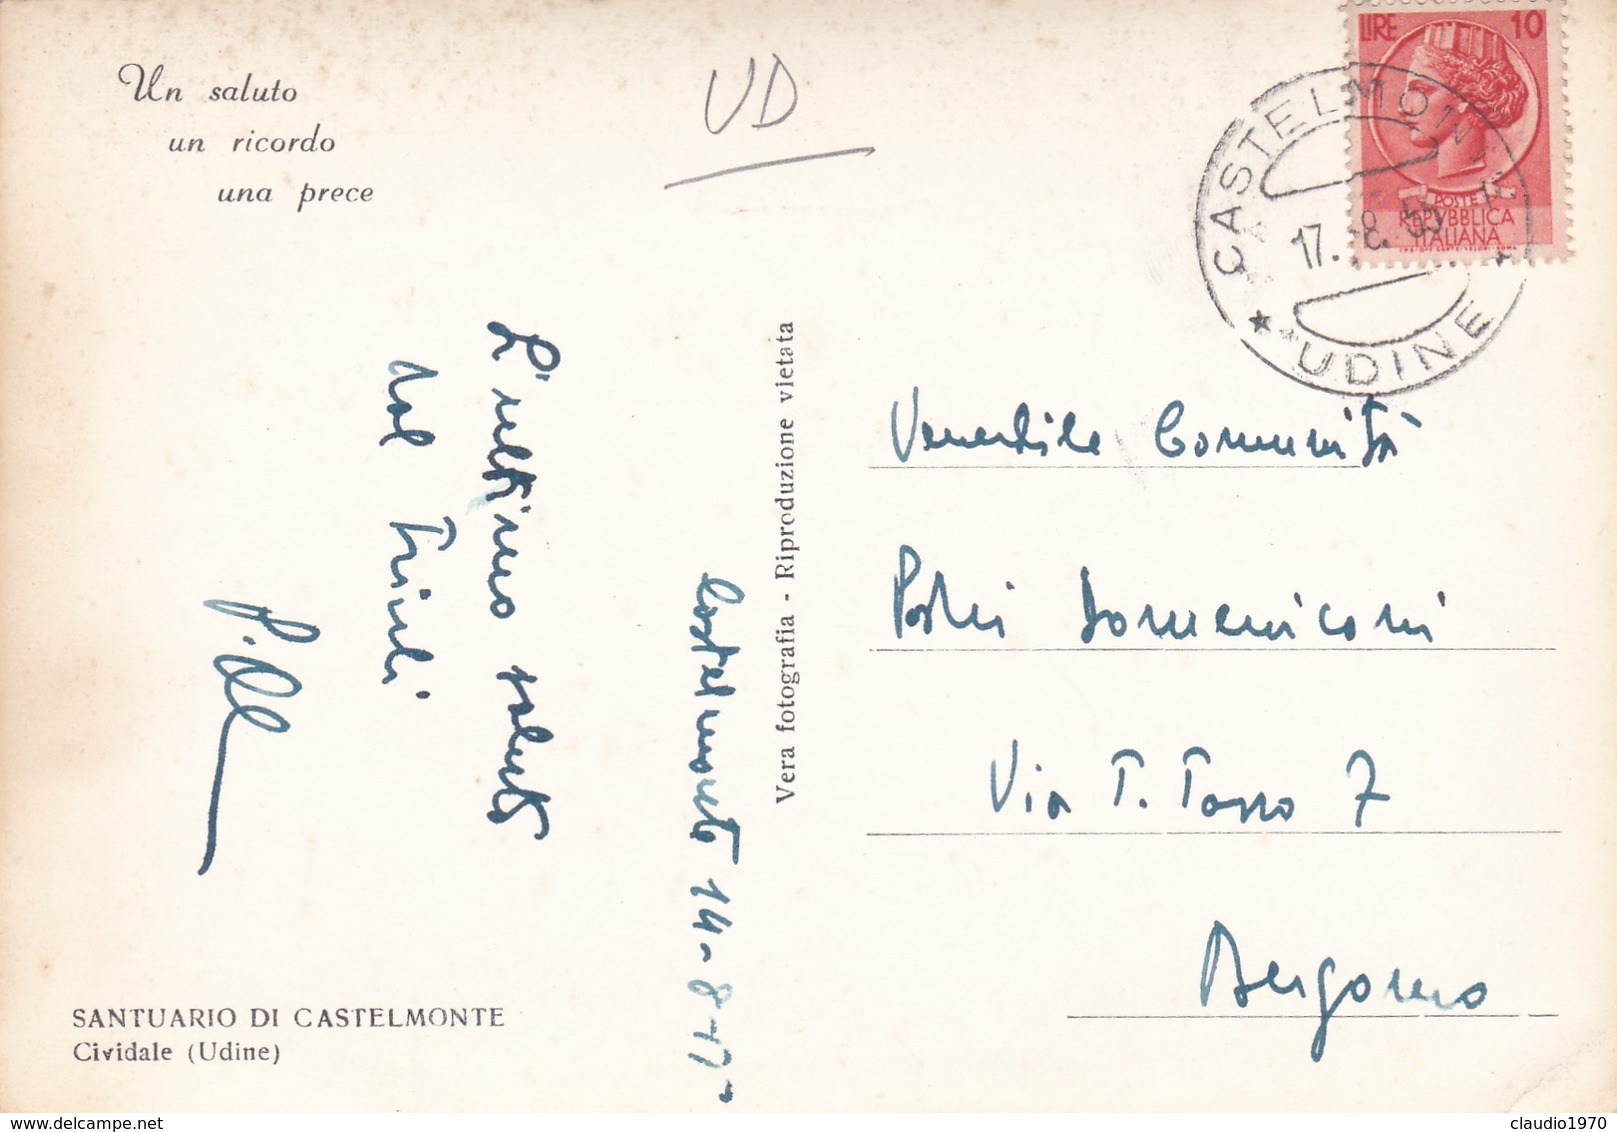 Un saluto
un ricordo
una prece
UD
LIRE 10
POSTE
REPVBBLICA
ITALIANA
CASTELMONTE
17. 8. 55
* UDINE *
L'ultimo saluto
dal Friuli
Castelmonte 14-8-
Vera fotografia - Riproduzione vietata
Venerabile Comunità
Padri Domenicani
Via T. Tasso 7
Bergamo
SANTUARIO DI CASTELMONTE
Cividale (Udine)
delcampe.net
claudio1970